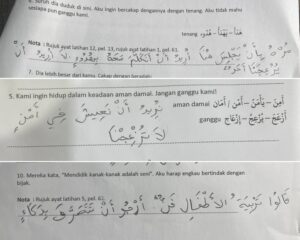 6. Suruh dia duduk di sini. Aku ingin bercakap dengannya dengan tenang. Aku tidak mahu
sesiapa pun ganggu kami.
تenang هُدُوْء - هَدَأَ
Nota : Rujuk ayat latihan 12, pel. 13, rujuk ayat latihan 5, pel. 61.
مُرْهُ بِأَنْ يَجْلِسَ هُنَا أُرِيْدُ أَنْ أَتَكَلَّمَ مَعَهُ بِهُدُوْءٍ لَا أُرِيْدُ أَنْ
يُزْعِجَنَا أَحَدٌ
7. Dia lebih besar dari kamu. Cakap dengan
5. Kami ingin hidup dalam keadaan aman damai. Jangan ganggu kami!
aman damai أَمِنَ - يَأْمَنُ - أَمْن / أَمَان
ganggu أَزْعَجَ - يُزْعِجُ - إِزْعَاج
نُرِيْدُ أَنْ نَعِيْشَ فِي أَمْنٍ
لَا تُزْعِجْنَا
10. Mereka kata, "Mendidik kanak-kanak adalah seni". Aku harap engkau bertindak dengan
bijak.
Nota : Rujuk ayat latihan 5, pel. 62.
قَالُوْا تَرْبِيَةُ الْأَطْفَالِ فَنٌّ أَرْجُوْ أَنْ تَتَصَرَّفَ بِذَكَاءٍ